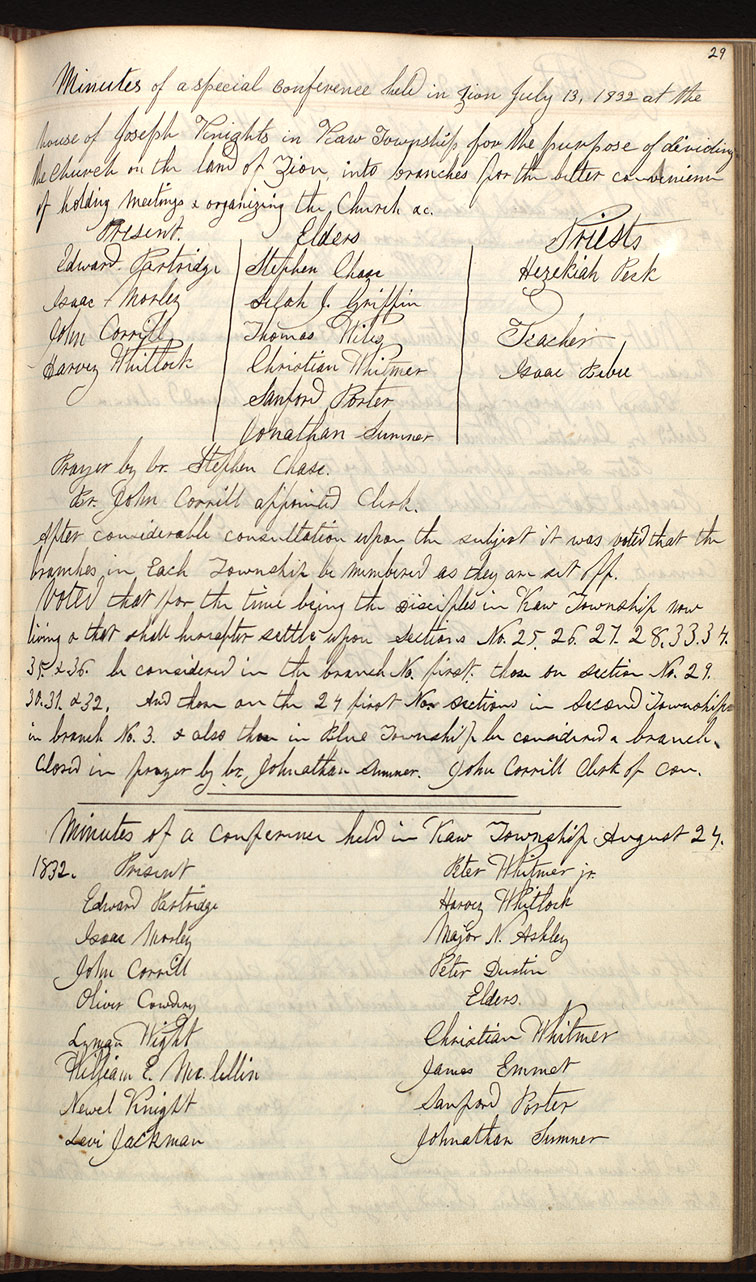 29
Minutes of a special conference held in Zion July 13, 1832 at the
house of Joseph Knights in Kaw Township for the purpose of dividing
the Church on the land of Zion, into branches for the better convenience
of holding meetings & organizing the Church &c.
Present. Elders Priests
Edward Partridge Stephen Chase Hezekiah Peck
Isaac Morley Selah J. Griffin
John Corrill Thomas Teacher
Harvey Whitlock Christian Whitmer Isaac Bebee
Sanford Porter
Jonathan Sumner
Prayer by br. Stephen Chase.
Br. John Corrill appointed Clerk.
After considerable consultation upon the subject it was voted that the
branches in Each Township be numbered as they are set off.
Voted that for the time being the disciples in Kaw Township now
living or that shall hereafter settle upon sections No. 25. 26. 27. 28. 33. 34.
35. & 36. be considered in the branch No. first. those on section No. 29.
30. 31. & 32. And those on the 24 first Nos sections in Second Township
in branch No. 3. & also those in Blue Township be considered a branch.
Closed in prayer by br. Johnathan Sumner. John Corrill Clerk of Con.
Minutes of a conference held in Kaw Township August 24.
1832. Present Peter Whitmer jr.
Edward Partridge Harvey Whitlock
Isaac Morley Major N. Ashley
John Corrill Peter Dustin
Oliver Cowdery Elders.
Lyman Wight Christian Whitmer
William E. Mc.lellin James Emmet
Newel Knight Sanford Porter
Levi Jackman Johnathan Sumner